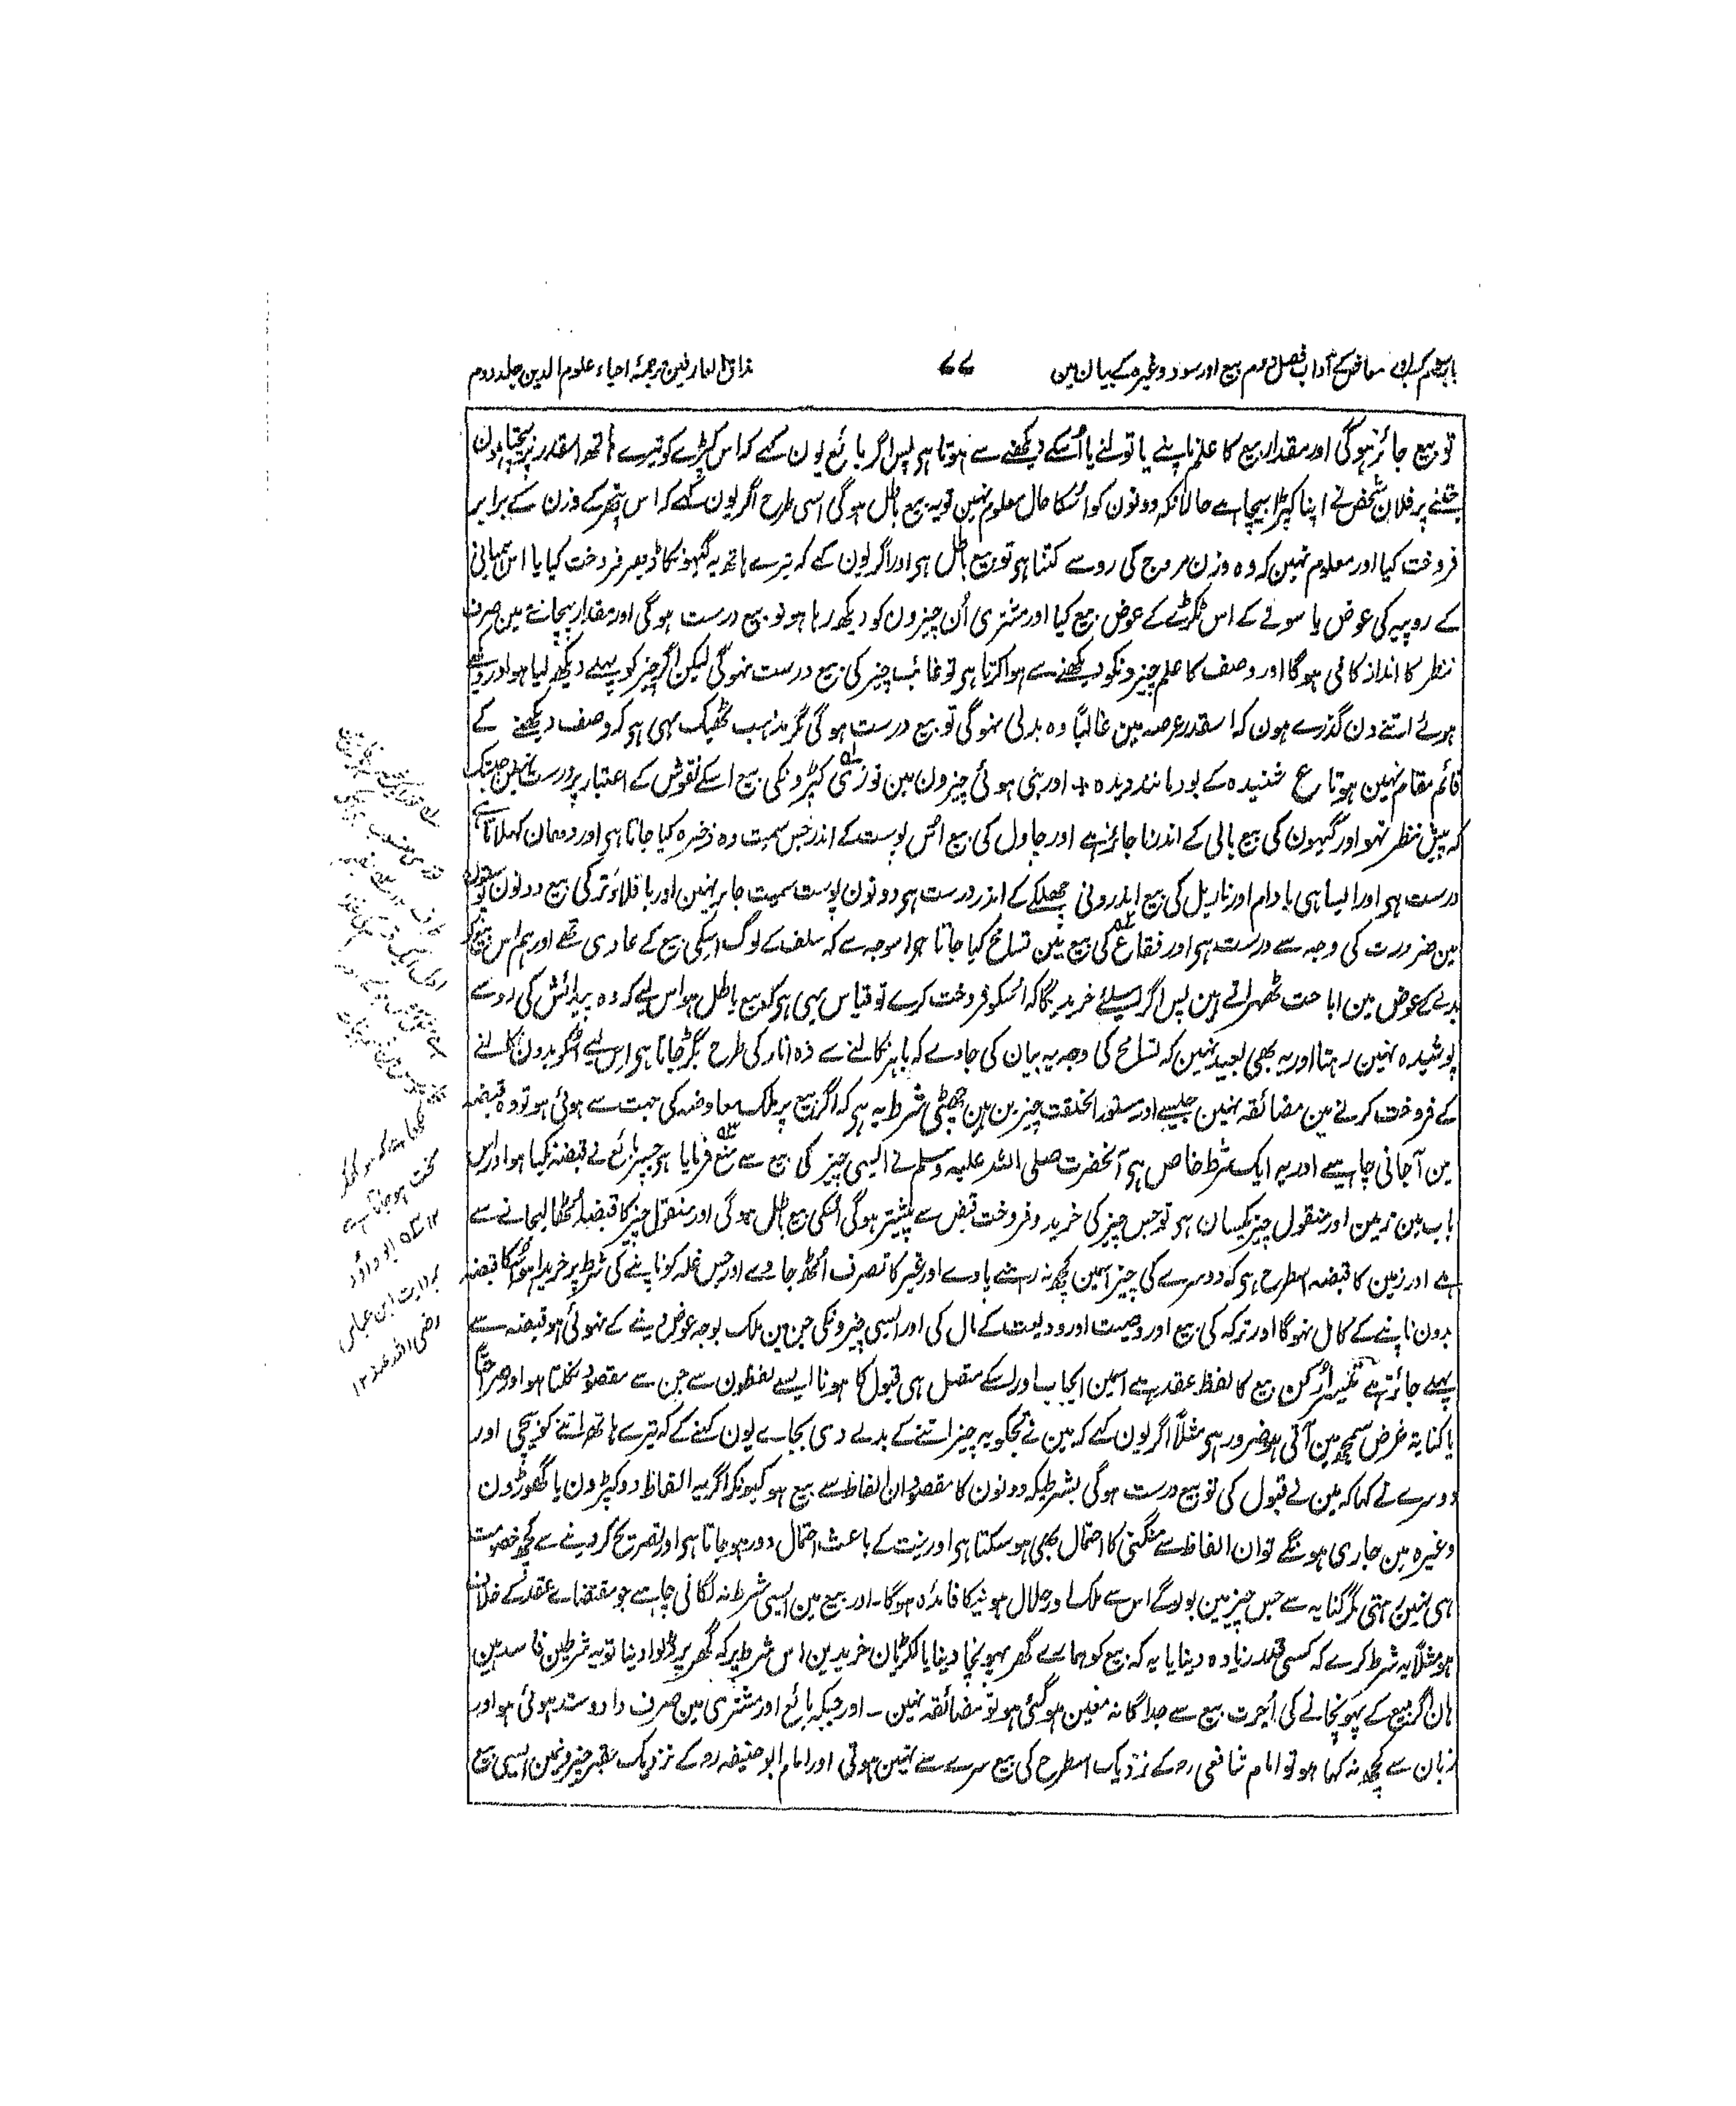 باب سوم کسب و معاش کے آداب فصل دوم بیع اور سود وغیرہ کے بیان مین
۷۷
مذاق العارفین ترجمۂ احیاء علوم الدین جلد دوم
تو بیع جائز نہوگی اور مقدار بیع کا علم ناپنے یا تولنے یا اُسکے دیکھنے سے ہوتا ہی پس اگر بائع یون کہے کہ اس کپڑے کو تیرے ہاتھ اسقدر پر بیچتا ہون
جتنے پر فلان شخص نے اپنا کپڑا بیچا ہے حالانکہ دونون کو اُسکا حال معلوم نہین تو یہ بیع باطل ہوگی اسی طرح اگر یون کہے کہ اس پتھر کے وزن کے برابر
فروخت کیا اور معلوم نہین کہ وہ وزن مروج کی روسے کتنا ہی تو بیع باطل ہی اور اگر یون کہے کہ تیرے ہاتھ یہ گیہونکا ڈھیر فروخت کیا یا اس ہمیانی
کے روپیہ کی عوض یا سونے کے اس ٹکڑے کے عوض بیع کیا اور مشتری اُن چیزون کو دیکھ رہا ہو تو بیع درست ہوگی اور مقدار پہچاننے مین صرف
نظر کا انداز کافی ہوگا اور وصف کا علم چیزونکو دیکھنے سے ہوا کرتا ہی تو غائب چیز کی بیع درست نہوگی لیکن اگر چیز کو پہلے دیکھ لیا ہو اور دیکھے
ہوئے اتنے دن گذرے ہون کہ اسقدر عرصہ مین غالباً وہ بدلی نہو گی تو بیع درست ہوگی مگر مذہب ٹھیک یہی ہی کہ وصف دیکھنے کے
قائم مقام نہین ہوتا ع شنیدہ کے بود مانند دیدہ + اور بنی ہوئی چیزون مین توزی کپڑونکی بیع اسکے نقوش کے اعتبار پر درست نہین جبتک
کہ پیش نظر نہو اور گیہون کی بیع بالی کے اندر ناجائز ہے اور چاول کی بیع اُس پوست کے اندر جس سمیت وہ ذخیرہ کیا جاتا ہی اور دھان کہلاتا ہے
درست ہی اور ایسا ہی بادام اور ناریل کی بیع اندرونی چھلکے کے اندر درست ہی دونون پوست سمیت جائز نہین اور باقلاء تر کی بیع دونون پوستون
مین ضرورت کی وجہ سے درست ہی اور فقاع کی بیع مین تسامح کیا جاتا ہی اسوجہ سے کہ سلف کے لوگ اسکی بیع کے عادی تھے اور ہم اس بیع کو
بدلے کے عوض مین اباحت ٹھہراتے ہین پس اگر اسلیئے خریدیگا کہ اُسکو فروخت کرے تو قیاس یہی ہی کہ بیع باطل ہو اس لیے کہ وہ پیدائش کی روسے
پوشیدہ نہین رہتا اور یہ بھی بعید نہین کہ تسامح کی وجہ یہ بیان کی جاوے کہ باہر نکالنے سے وہ انار کی طرح بگڑ جاتا ہی اس لیے اُسکو بدون نکالنے
کے فروخت کرنے مین مضائقہ نہین جیسے اور مستور الخلقت چیزین ہین چھٹی شرط یہ ہی کہ اگر بیع پر ملک معاوضہ کی جہت سے ہوئی ہو تو وہ قبضہ
مین آجانی چاہیے اور یہ ایک شرط خاص ہی آنحضرت صلی اللہ علیہ وسلم نے ایسی چیز کی بیع سے منع فرمایا ہی جسپر بائع نے قبضہ نکیا ہو اور اس
باب مین زمین اور منقول چیز یکسان ہی تو جس چیز کی خرید و فروخت قبض سے پیشتر ہوگی اُسکی بیع باطل ہوگی اور منقول چیز کا قبضہ اُٹھا لیجانے سے
ہے اور زمین کا قبضہ اسطرح ہی کہ دوسرے کی چیز اسمین کچھ نہ رہنے پاوے اور غیر کا تصرف اُٹھ جاوے اور جس غلہ کو ناپنے کی شرط پر خریدا ہو اُسکا قبضہ
بدون ناپنے کے کامل نہوگا اور ترکہ کی بیع اور وصیت اور ودیعت کے مال کی اور ایسی چیزونکی جن مین ملک بوجہ عوض دینے کے نہوئی ہو قبضہ سے
پہلے جائز ہے تیسرا رکن بیع کا لفظ عقد ہے اسمین ایجاب اور اسکے متصل ہی قبول کا ہونا ایسے لفظون سے جن سے مقصود نکلتا ہو اور صراحۃً
یا کنایۃ غرض سمجھ مین آتی ہو ضرور ہی مثلاً اگر یون کہے کہ مین نے تجکو یہ چیز اتنے کے بدلے دی بجاے یون کہنے کے کہ تیرے ہاتھ اتنے کو بیچی اور
دوسرے نے کہا کہ مین نے قبول کی تو بیع درست ہوگی بشرطیکہ دونون کا مقصود ان الفاظ سے بیع ہو کیونکہ اگر یہ الفاظ دو کپڑون یا گھوڑون
وغیرہ مین جاری ہونگے تو ان الفاظ سے منگنی کا احتمال بھی ہو سکتا ہی اور نیت کے باعث احتمال دور ہو جاتا ہی اور تصریح کر دینے سے کچھ خصومت
ہی نہین رہتی مگر کنایہ سے جس چیز مین بولوگے اس سے ملک اور حلال ہونیکا فائدہ ہوگا۔ اور بیع مین ایسی شرط نہ لگانی چاہیے جو مقتضاے عقد کے خلاف
ہو مثلاً یہ شرط کرے کہ کسی قدر زیادہ دینا یا یہ کہ بیع کو ہمارے گھر پہونچا دینا یا لکڑیان خریدین اس شرط پر کہ گھر پر ڈلوا دینا تو یہ شرطین فاسد ہین
ہان اگر بیع کے پہونچانے کی اُجرت بیع سے جداگانہ معین ہو گئی ہو تو مضائقہ نہین ۔ اور جبکہ بائع اور مشتری مین صرف داد و ستد ہوئی ہو اور
زبان سے کچھ نہ کہا ہو تو امام شافعی رہ کے نزدیک اسطرح کی بیع سرے سے نہین ہوتی اور امام ابو حنیفہ رہ کے نزدیک حقیر چیزونمین ایسی بیع
سخت ہو جاتا ہے
۱۲ ابو داؤد
بروایت ابن عباس
رضی اللہ عنہ ۱۲